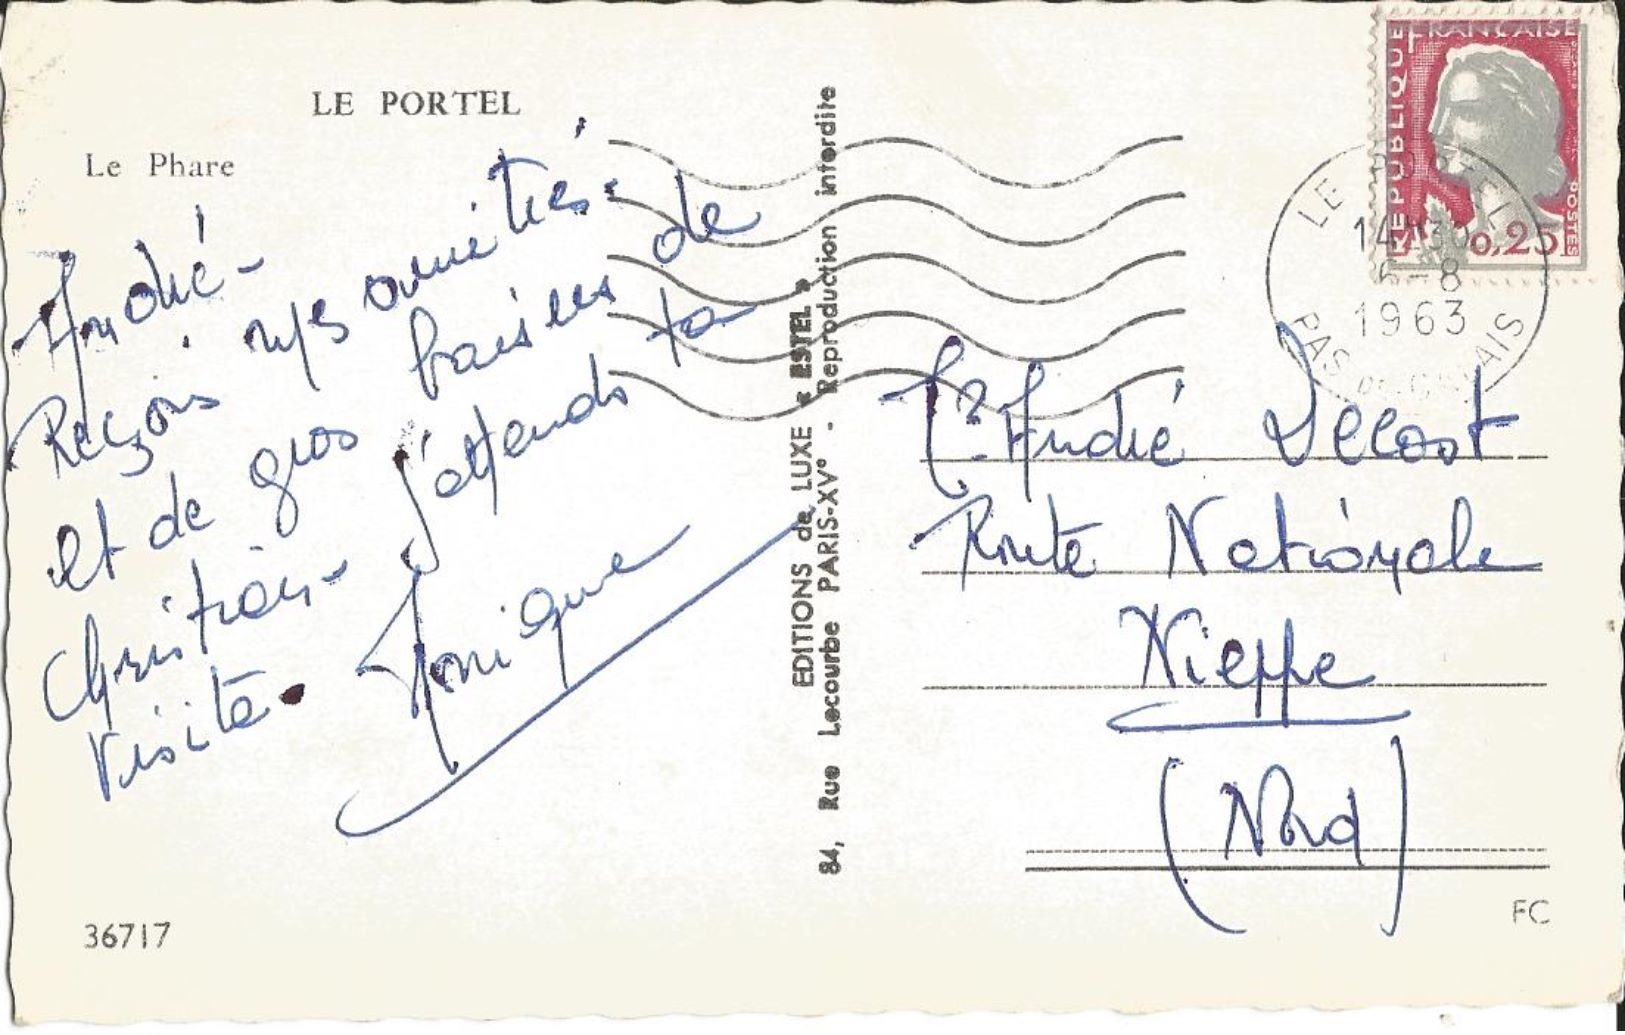 LE PORTEL
Le Phare
André -
Reçois mes amitiés.
et de gros baisers de
Christian - J'attends ta
visite.
Monique
36717
EDITIONS de LUXE « ESTEL »
84, Rue Lecourbe PARIS-XVº - Reproduction interdite
REPUBLIQUE FRANÇAISE
POSTES
0,25
LE PORTEL
14H30
6-8
1963
PAS DE CALAIS
André Decost
Route Nationale
Nieppe
(Nord)
FC